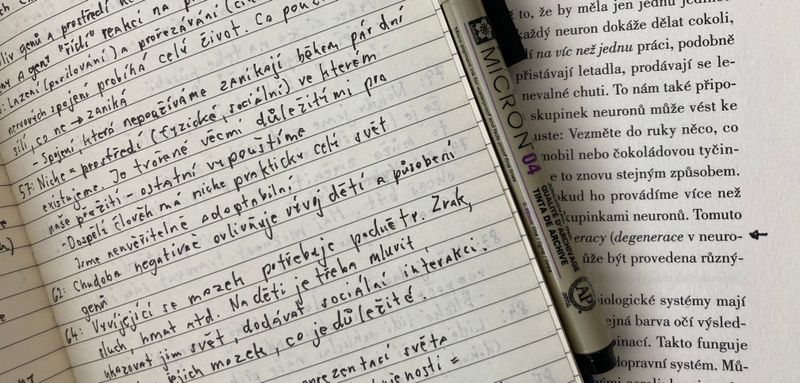 liv genů a prostředí n
ny a gent "řídí" reakci na p
: Lazení (posilování) a prořezávání (
nervových spojení probíhá celý život. Co použ
sílí, co ne → zaniká
- Spojení, která nepoužíváme zanikají během pár dní
57: Niche = prostředí (fyzické, sociální) ve kterém
existujeme. Je tvořené věcmi důležitými pro
naše přežití - ostatní vypouštíme
- Dospělí člověk má niche prakticky celý svět
Jsme neuvěřitelně adaptabilní
62: Chudoba negativně ovlivňuje vývoj dětí a působení
genů
64: Vyvíjející se mozek potřebuje podněty. Zrak,
sluch, hmat atd. Na děti je třeba mluvit,
ukazovat jim svět, dodávat sociální interakci.
jejich mozek, co je důležité.
prezentací světa
jenosti =
MICRON 04
QUALITÉ D'ARCHIVAGE
TINTA DE ARCHIVE
AP
to, že by měla jen jednu jedinou
každý neuron dokáže dělat cokoli,
dí na víc než jednu práci, podobně
přistávají letadla, prodávají se le-
nevalné chuti. To nám také připo-
skupinek neuronů může vést ke
uste: Vezměte do ruky něco, co
mobil nebo čokoládovou tyčin-
e to znovu stejným způsobem.
okud ho provádíme více než
kupinkami neuronů. Tomuto
eracy (degenerace v neuro-
ůže být provedena různý-
biologické systémy mají
ejná barva očí výsled-
binací. Takto funguje
dopravní systém. Mů-